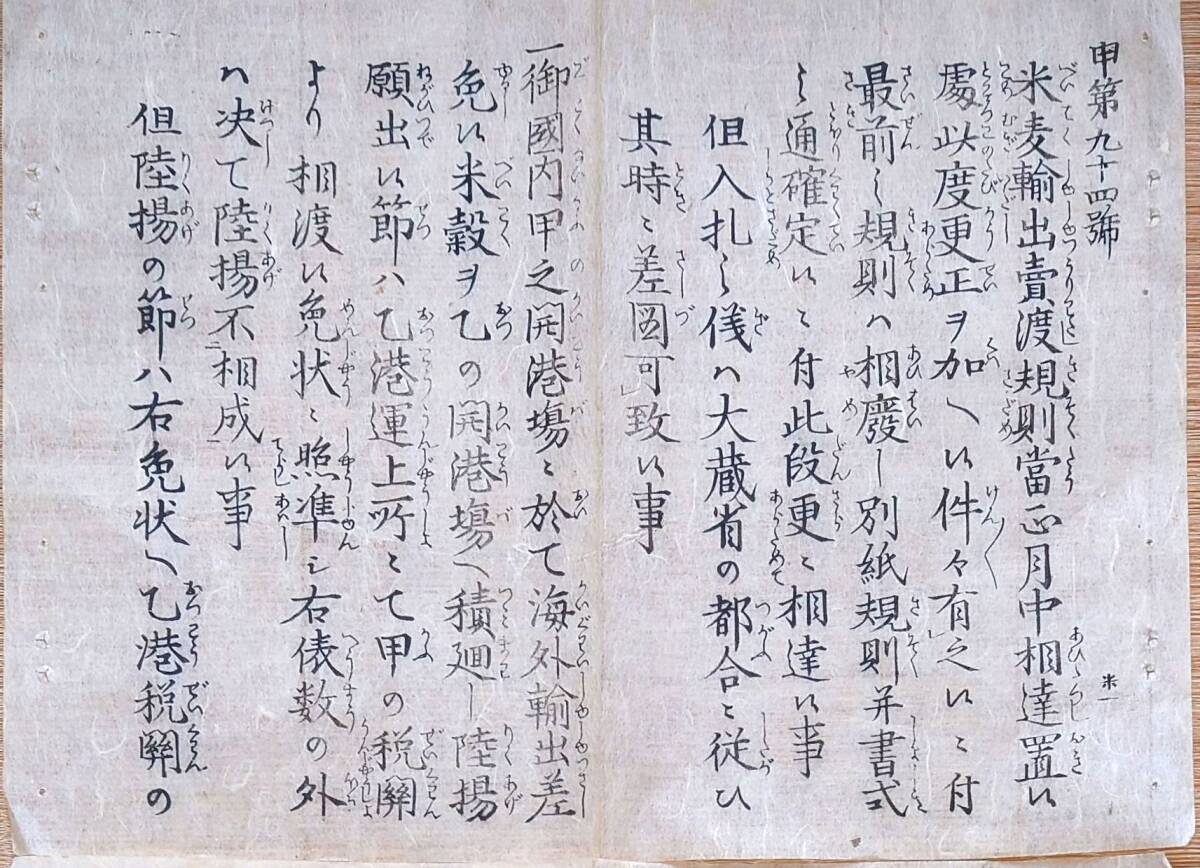 申第九十四號
米一
米麦輸出賣渡規則當正月中相達置候
處此度更正ヲ加ヘ候件々有之候ニ付
最前之規則ハ相廢シ別紙規則并書式
之通確定候ニ付此段更ニ相達候事
但入札之儀ハ大蔵省の都合ニ従ひ
其時ニ差図可致候事
一御國内甲之開港塲ニ於て海外輸出差
免候米穀ヲ乙の開港塲ヘ積廻シ陸揚
願出候節ハ乙港運上所ニて甲の税關
より相渡候免状ニ照準シ右俵数の外
ハ决て陸揚不相成候事
但陸揚の節ハ右免状ヘ乙港税關の